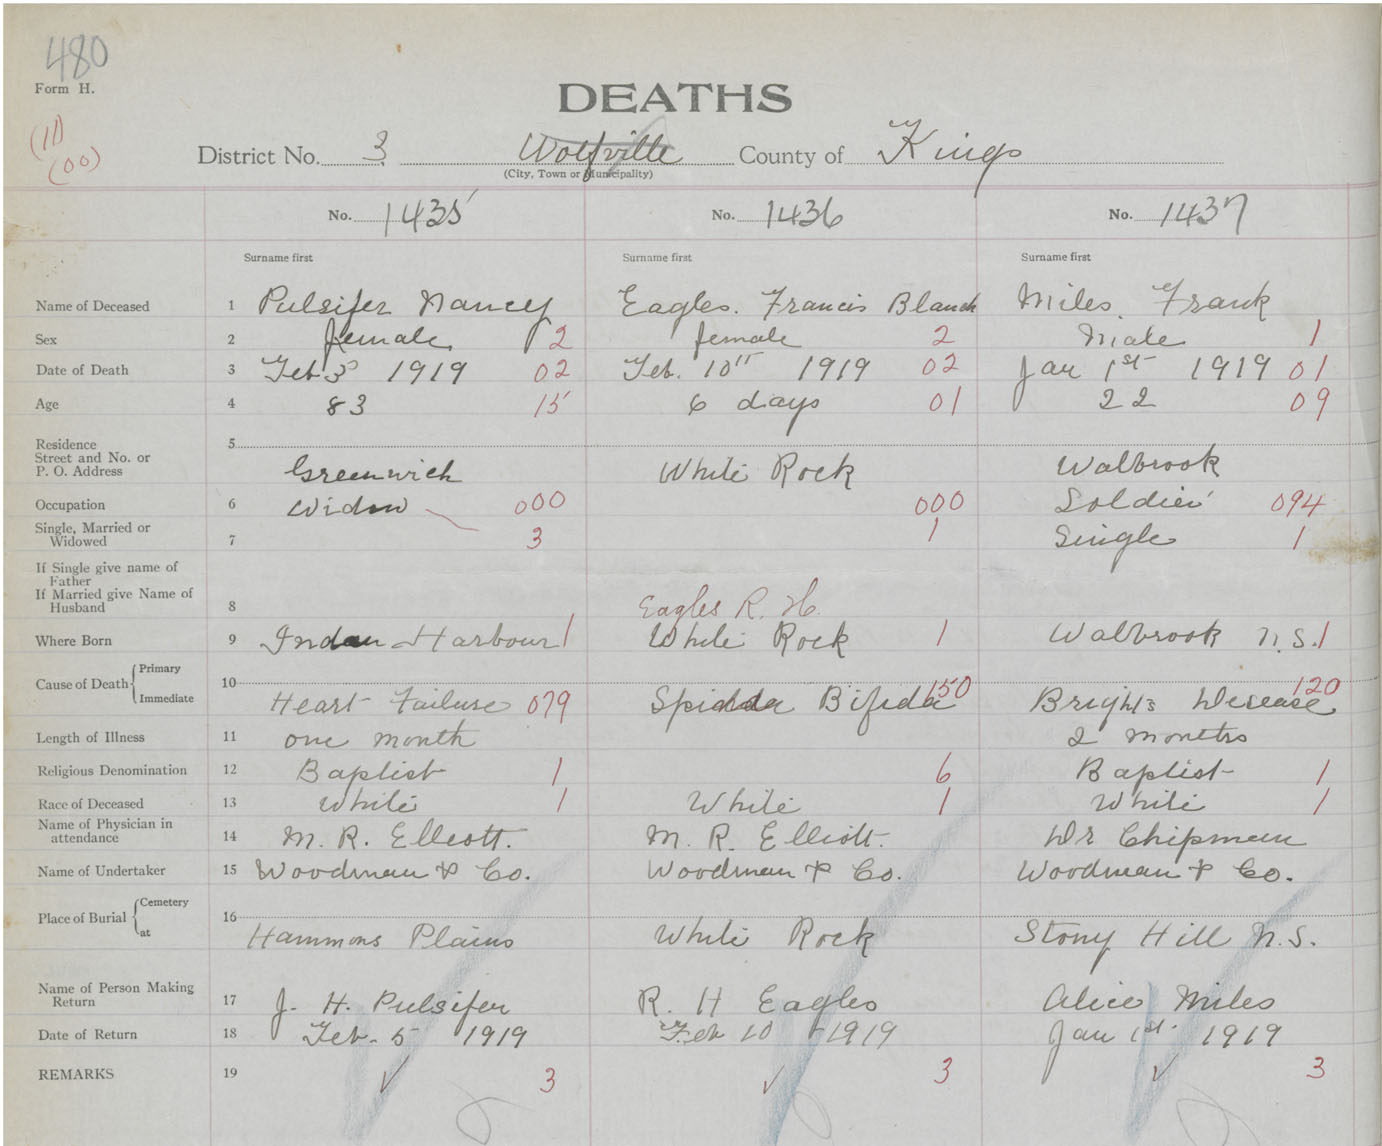 480
Form H.
DEATHS
(11)
(00)
District No. 3 Wolfville County of Kings
(City, Town or Municipality)
No. 1435 No. 1436 No. 1437
Surname first Surname first Surname first
Name of Deceased 1 Pulsifer Nancy Eagles. Francis Blanch Miles. Frank
Sex 2 female 2 female 2 Male 1
Date of Death 3 Feb 3 1919 02 Feb. 10th 1919 02 Jan 1st 1919 01
Age 4 83 15 6 days 01 22 09
Residence 5
Street and No. or
P. O. Address Greenwich White Rock Walbrook
Occupation 6 Widow 000 000 Soldier 094
Single, Married or
Widowed 7 3 1 Single 1
If Single give name of
Father
If Married give Name of
Husband 8 Eagles R. H.
Where Born 9 Indian Harbour 1 White Rock 1 Walbrook N.S. 1
Cause of Death Primary 10
Immediate Heart Failure 079 Spidda Bifida 150 Brights Disease 120
Length of Illness 11 one month 2 months
Religious Denomination 12 Baptist 1 6 Baptist 1
Race of Deceased 13 White 1 White 1 White 1
Name of Physician in
attendance 14 M. R. Elliott. M. R. Elliott. Dr Chipman
Name of Undertaker 15 Woodman & Co. Woodman & Co. Woodman & Co.
Place of Burial Cemetery 16
at Hammons Plains White Rock Stony Hill N.S.
Name of Person Making
Return 17 J. H. Pulsifer R. H Eagles Alice Miles
Date of Return 18 Feb. 5 1919 Feb 10 1919 Jan 1st 1919
REMARKS 19 ✓ 3 ✓ 3 ✓ 3